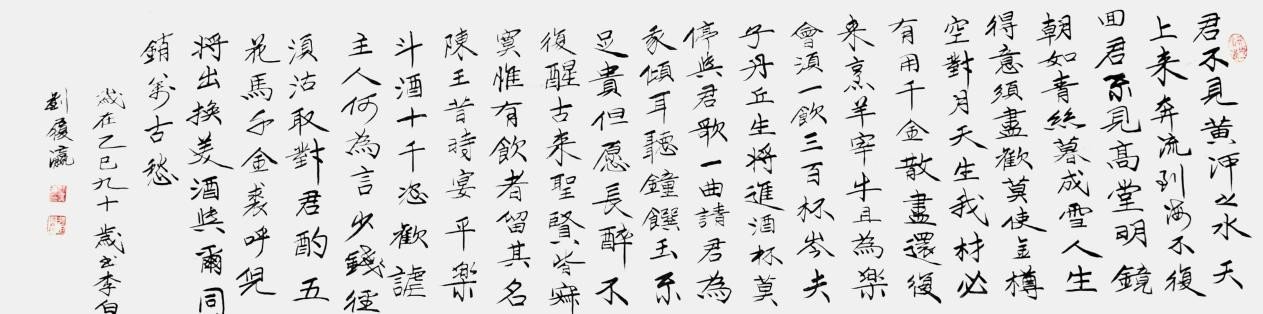 君不見黃河之水天
上来奔流到海不復
囬君不見髙堂明鏡
朝如青絲暮成雪人生
得意須盡歡莫使金樽
空對月天生我材必
有用千金散盡還復
来烹羊宰牛且為樂
會須一飲三百杯岑夫
子丹丘生將進酒杯莫
停與君歌一曲請君為
我傾耳聽鐘饌玉不
足貴但愿長醉不
復醒古来聖賢皆寂
寞惟有飲者留其名
陳王昔時宴平樂
斗酒十千恣歡謔
主人何為言少錢徑
須沽取對君酌五
花馬千金裘呼兒
將出換美酒與爾同
銷萬古愁
歲在乙巳九十歲書李白
劉復瀛